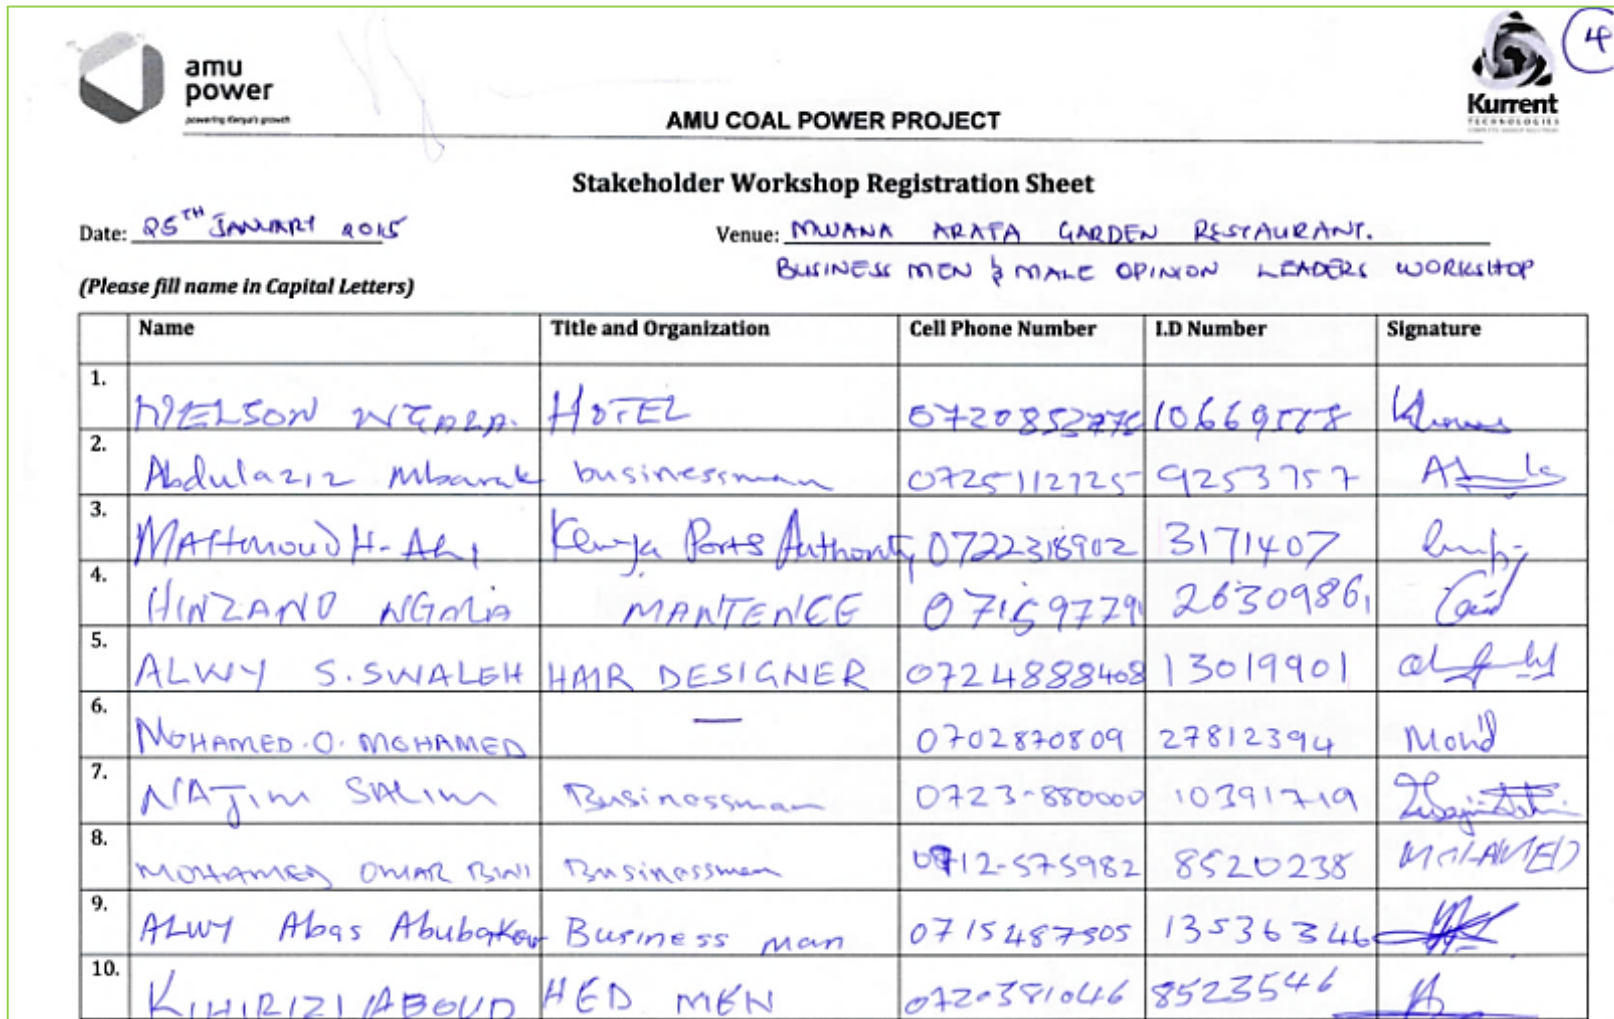 amu
power
powering Kenya's growth
4
Kurrent
TECHNOLOGIES
AMU COAL POWER PROJECT
Stakeholder Workshop Registration Sheet
Date: 25TH JANUARY 2015
Venue: MWANA ARAFA GARDEN RESTAURANT.
BUSINESS MEN & MALE OPINION LEADERS WORKSHOP
(Please fill name in Capital Letters)
Name Title and Organization Cell Phone Number I.D Number Signature
1. NELSON HOTEL
2. Abdulaziz Mbarak businessman 0725112725 9253757
3. Mahmoud H. Ali Kenya Ports Authority 0722318902 3171407
4. HINZANO NGALA MANTENCE 26309861
5. ALWY S. SWALEH HAIR DESIGNER 0724888408 13019901
6. MOHAMED. O. MOHAMED — 0702870809 27812394 Mohd
7. NAJIM SALIM Businessman 0723-880000 10391719
8. MOHAMED OMAR BINI Businessman 0712-575982 8520238 MOHAMED
9. ALWY Abas Abubakar Business man 0715487505 13536346
10. KIHIRIZI ABOUD HED MEN 0720381046 8523546